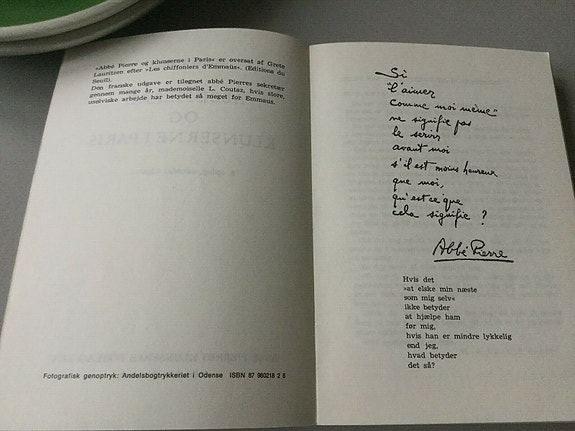 »Abbé Pierre og klunserne i Paris« er oversat af Grete
Lauritzen efter »Les chiffoniers d'Emmaüs«. (Editions du
Seuil).
Den franske udgave er tilegnet abbé Pierres sekretær
gennem mange år, mademoiselle L. Coutaz, hvis store,
uselviske arbejde har betydet så meget for Emmaus.
Fotografisk genoptryk: Andelsbogtrykkeriet i Odense ISBN 87 980218 2 8
Si
"l'aimer
comme moi même"
ne signifie pas
le servir
avant moi
s'il est moins heureux
que moi,
qu'est ce que
cela signifie ?
Abbé Pierre
Hvis det
»at elske min næste
som mig selv«
ikke betyder
at hjælpe ham
før mig,
hvis han er mindre lykkelig
end jeg,
hvad betyder
det så?